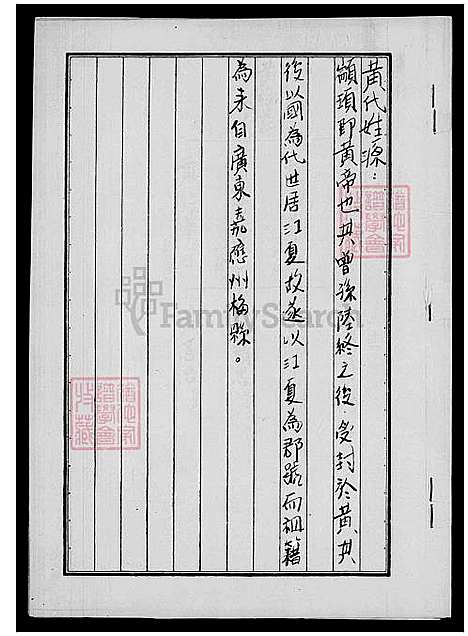 黃代姓源：
顓頊即黃帝也其曾孫陸終之後，受封於黃其
後以國為代世居江夏故遂以江夏為郡號而祖籍
為來自廣東嘉應州梅縣。
FamilySearch